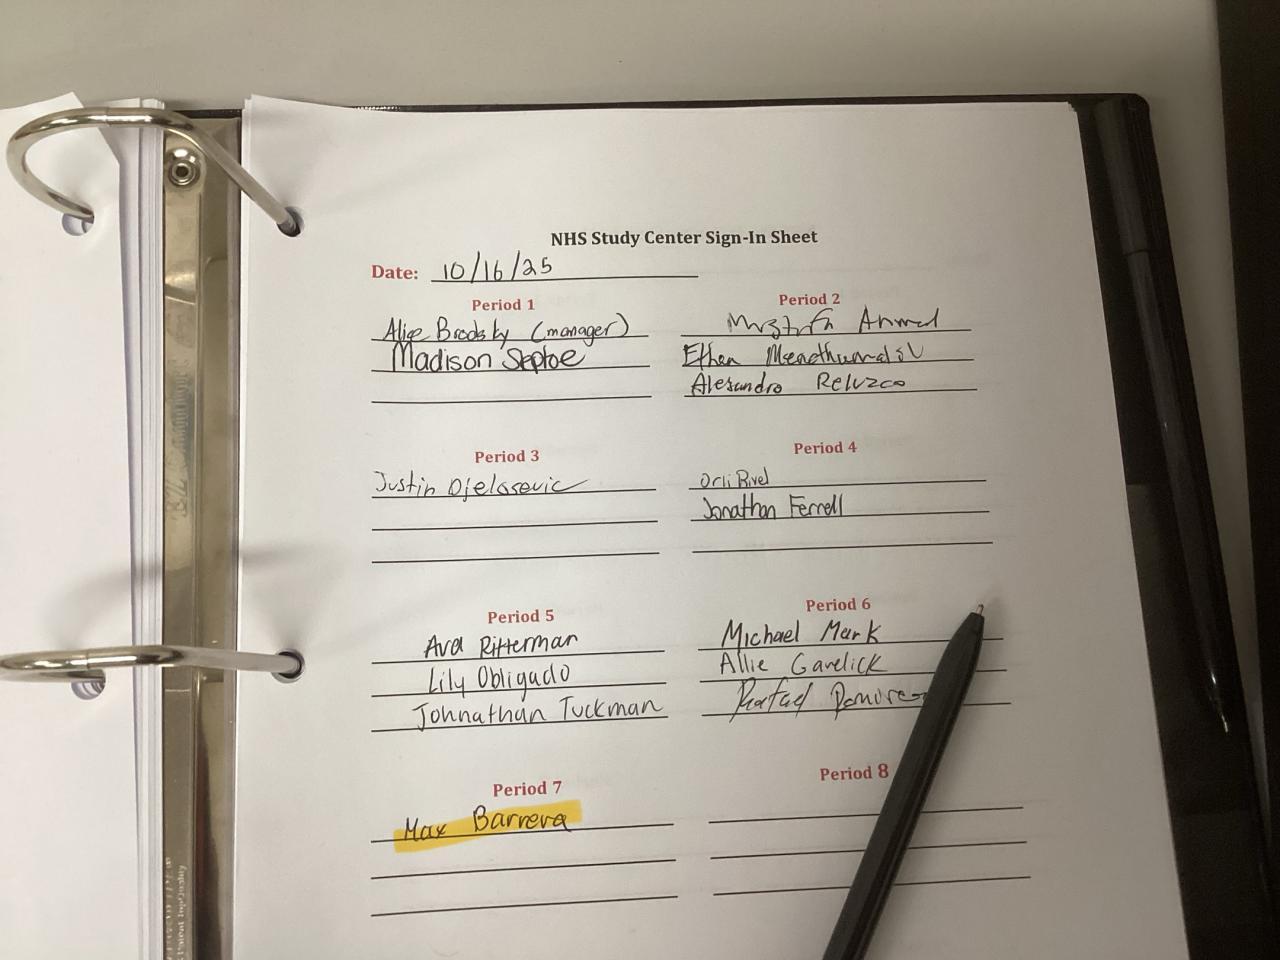 NHS Study Center Sign-In Sheet
Date: 10/16/25
Period 1
Alice Brodsky (manager)
Madison Septoe
Period 2
Ahmed
Ethan
Alesandro
Period 3
Justin Djelosevic
Period 4
Orli Rivel
Jonathan Ferrell
Period 5
Ava Ritterman
Lily Obligado
Johnathan Tuckman
Period 6
Michael Mark
Allie Gavelick
Rafael
Period 7
Max Barrera
Period 8